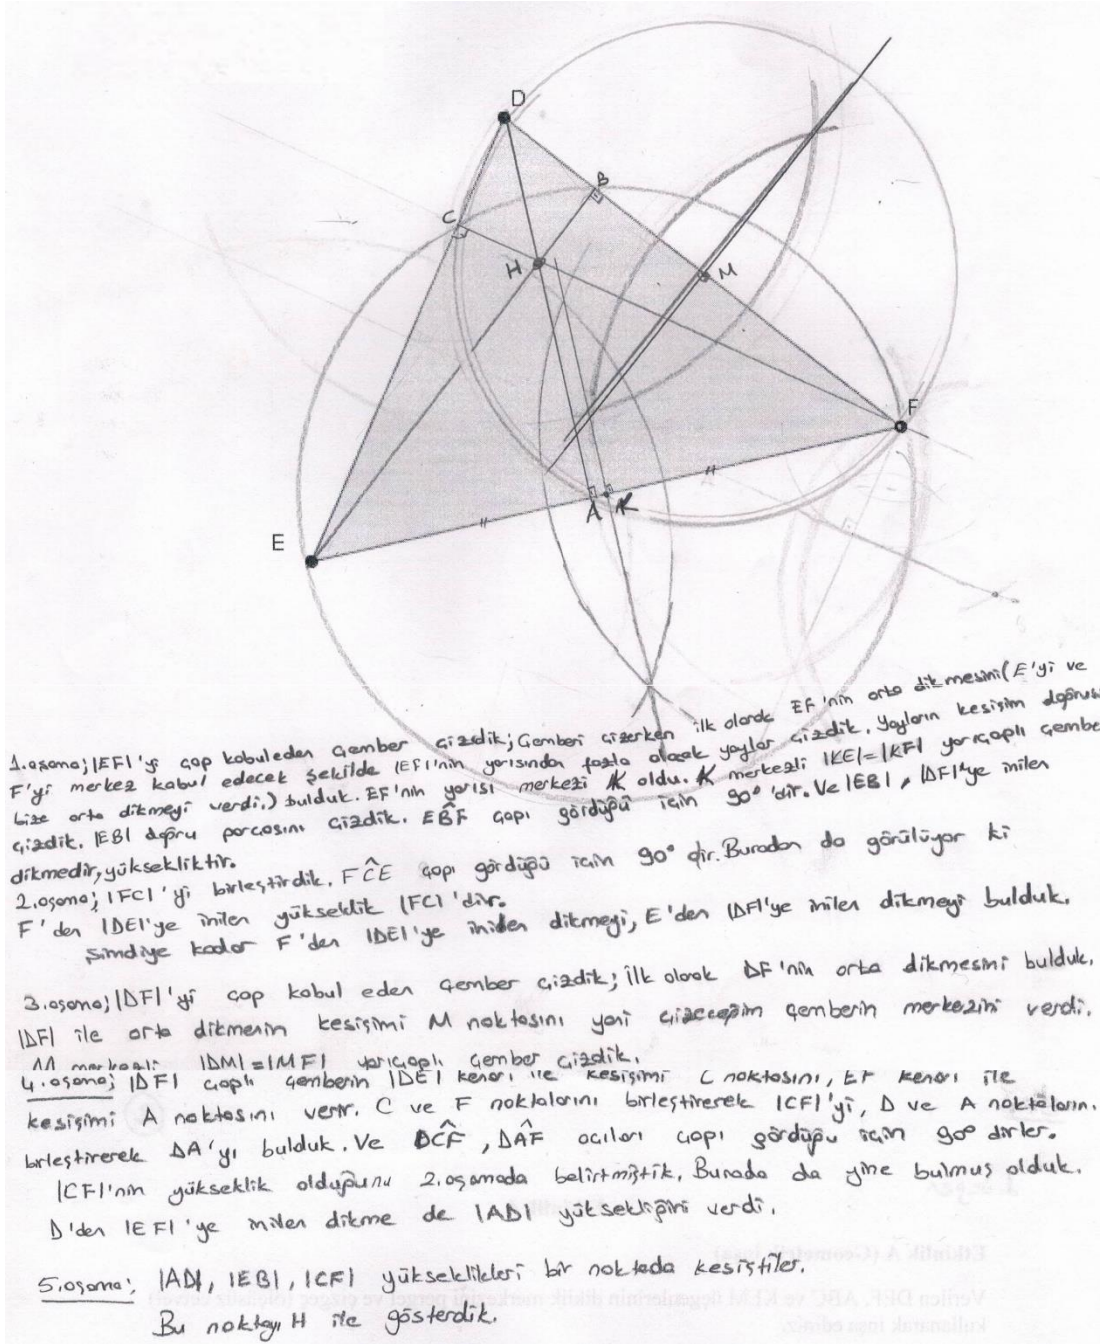 D
B
C
H
M
F
A K
E
1.aşama; |EF|'yi çap kabul eden çember çizdik; Çemberi çizerken ilk olarak EF'nin orta dikmesini (E'yi ve
F'yi merkez kabul edecek şekilde |EF|'nin yarısından fazla olacak yaylar çizdik. Yayların kesişim doğrusu
bize orta dikmeyi verdi.) bulduk. EF'nin yarısı merkezi K oldu. K merkezli |KE|=|KF| yarıçaplı çember
çizdik. |EB| doğru parçasını çizdik. EB̂F çapı gördüğü için 90°'dir. Ve |EB|, |DF|'ye inilen
dikmedir, yüksekliktir.
2.aşama; |FC|'yi birleştirdik. FĈE çapı gördüğü için 90° dir. Buradan da görülüyor ki
F'den |DE|'ye inilen yükseklik |FC|'dir.
Şimdiye kadar F'den |DE|'ye inilen dikmeyi, E'den |DF|'ye inilen dikmeyi bulduk.
3.aşama; |DF|'yi çap kabul eden çember çizdik; İlk olarak DF'nin orta dikmesini bulduk.
|DF| ile orta dikmenin kesişimi M noktasını yani çizeceğim çemberin merkezini verdi.
M merkezli |DM|=|MF| yarıçaplı çember çizdik.
4.aşama; |DF| çaplı çemberin |DE| kenarı ile kesişimi C noktasını, EF kenarı ile
kesişimi A noktasını verir. C ve F noktalarını birleştirerek |CF|'yi, D ve A noktaların.
birleştirerek DA'yı bulduk. Ve DĈF, DÂF açıları çapı gördüğü için 90° dirler.
|CF|'nin yükseklik olduğunu 2.aşamada belirtmiştik. Burada da yine bulmuş olduk.
D'den |EF|'ye inilen dikme de |AD| yüksekliğini verdi.
5.aşama; |AD|, |EB|, |CF| yükseklikleri bir noktada kesiştiler.
Bu noktayı H ile gösterdik.